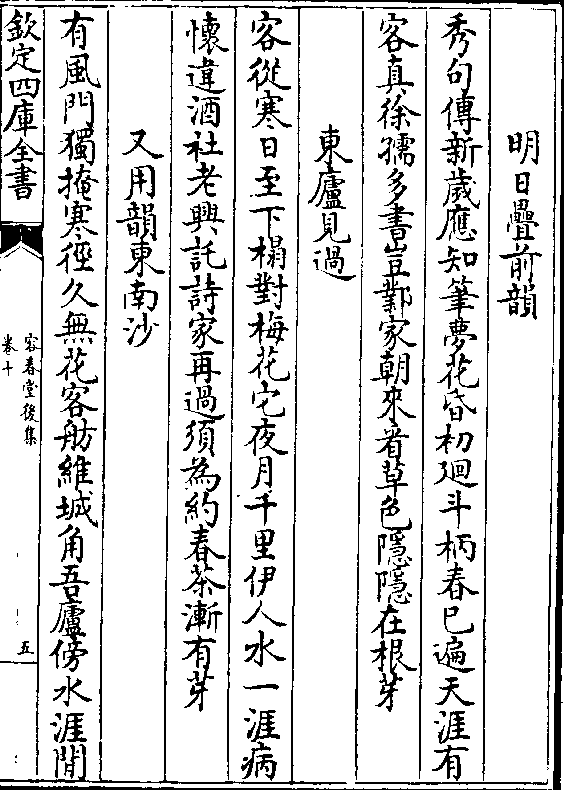 明日疊前韻
秀句傳新歲應知筆夢花昏初廻斗柄春已遍天涯有
客真徐孺多書豈鄴家朝來看草色隱隱在根芽
東廬見過
客從寒日至下榻對梅花它夜月千里伊人水一涯病
懷違酒社老興託詩家再過須為約春茶漸有芽
又用韻東南沙
有風門獨掩寒徑久無花客舫維城角吾廬傍水涯閒
欽定四庫全書
容春堂後集
卷十
五